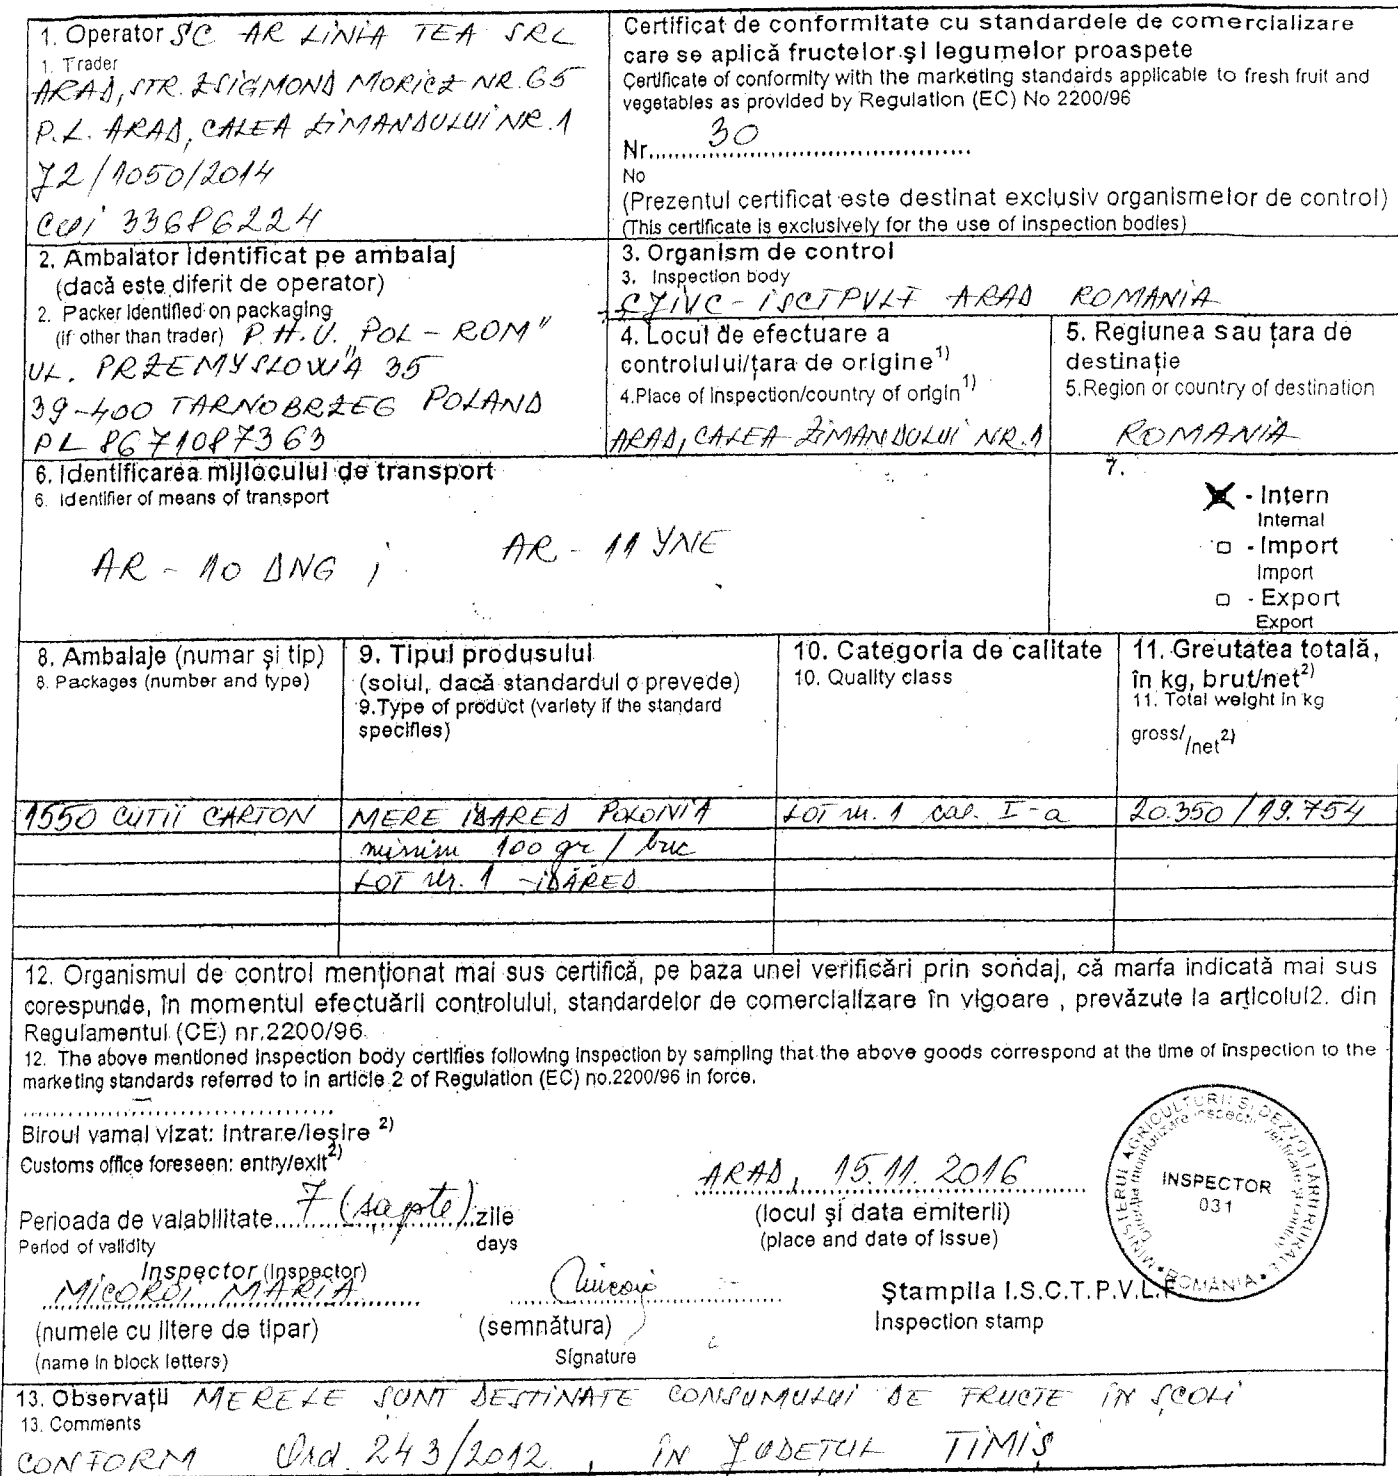 1. Operator SC AR LINIA TEA SRL
1. Trader
ARAD, STR. ZSIGMOND MORICZ NR. 65
P.L. ARAD, CALEA ZIMANDULUI NR. 1
J2/1050/2014
CUI 33686224
Certificat de conformitate cu standardele de comercializare
care se aplică fructelor și legumelor proaspete
Certificate of conformity with the marketing standards applicable to fresh fruit and
vegetables as provided by Regulation (EC) No 2200/96
Nr. 30
No
(Prezentul certificat este destinat exclusiv organismelor de control)
(This certificate is exclusively for the use of inspection bodies)
2. Ambalator identificat pe ambalaj
(dacă este diferit de operator)
2. Packer identified on packaging
(if other than trader) P.H.U. "POL - ROM"
UL. PRZEMYSLOWA 35
39-400 TARNOBRZEG POLAND
PL 8671087363
3. Organism de control
3. Inspection body
CJIVC - ISCTPVLF ARAD ROMANIA
4. Locul de efectuare a
controlului/țara de origine1)
4.Place of inspection/country of origin1)
ARAD, CALEA ZIMANDULUI NR. 1
5. Regiunea sau țara de
destinație
5.Region or country of destination
ROMANIA
6. Identificarea mijlocului de transport
6. Identifier of means of transport
AR - 10 DNG ; AR - 11 YNE
7.
- Intern
Internal
- Import
Import
- Export
Export
8. Ambalaje (numar și tip)
8. Packages (number and type)
9. Tipul produsului
(soiul, dacă standardul o prevede)
9.Type of product (variety if the standard
specifies)
10. Categoria de calitate
10. Quality class
11. Greutatea totală,
în kg, brut/net2)
11. Total weight in kg
gross/ /net2)
1550 CUTII CARTON MERE IDARED POLONIA LOT nr. 1 cal. I-a 20.350 / 19.754
minim 100 gr / buc
LOT nr. 1 - IDARED
12. Organismul de control menționat mai sus certifică, pe baza unei verificări prin sondaj, că marfa indicată mai sus
corespunde, în momentul efectuării controlului, standardelor de comercializare în vigoare , prevăzute la articolul2. din
Regulamentul (CE) nr.2200/96
12. The above mentioned inspection body certifies following inspection by sampling that the above goods correspond at the time of inspection to the
marketing standards referred to in article 2 of Regulation (EC) no.2200/96 in force.
Biroul vamal vizat: intrare/ieșire 2)
Customs office foreseen: entry/exit2)
Perioada de valabilitate 7 (sapte) zile
Period of validity days
ARAD, 15.11.2016
(locul și data emiterii)
(place and date of issue)
MINISTERUL AGRICULTURII ȘI DEZVOLTĂRII RURALE
ROMÂNIA
INSPECTOR
031
Inspector (Inspector)
MICOROI MARIA
(numele cu litere de tipar)
(name in block letters)
(semnătura)
Signature
Ștampila I.S.C.T.P.V.L.F
Inspection stamp
13. Observații MERELE SUNT DESTINATE CONSUMULUI DE FRUCTE ÎN ȘCOLI
13. Comments
CONFORM Ord. 243/2012, ÎN JUDEȚUL TIMIȘ